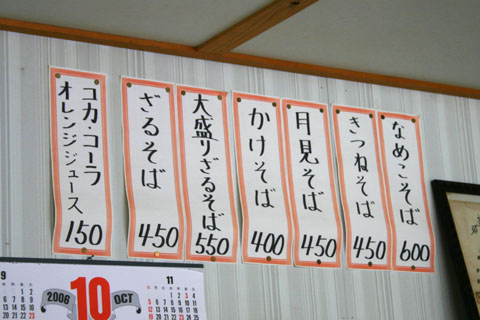 なめこそば
600
きつねそば
450
月見そば
450
かけそば
400
大盛りざるそば
550
ざるそば
450
コカ・コーラ
オレンジジュース
150
9
2006
10
OCT
11